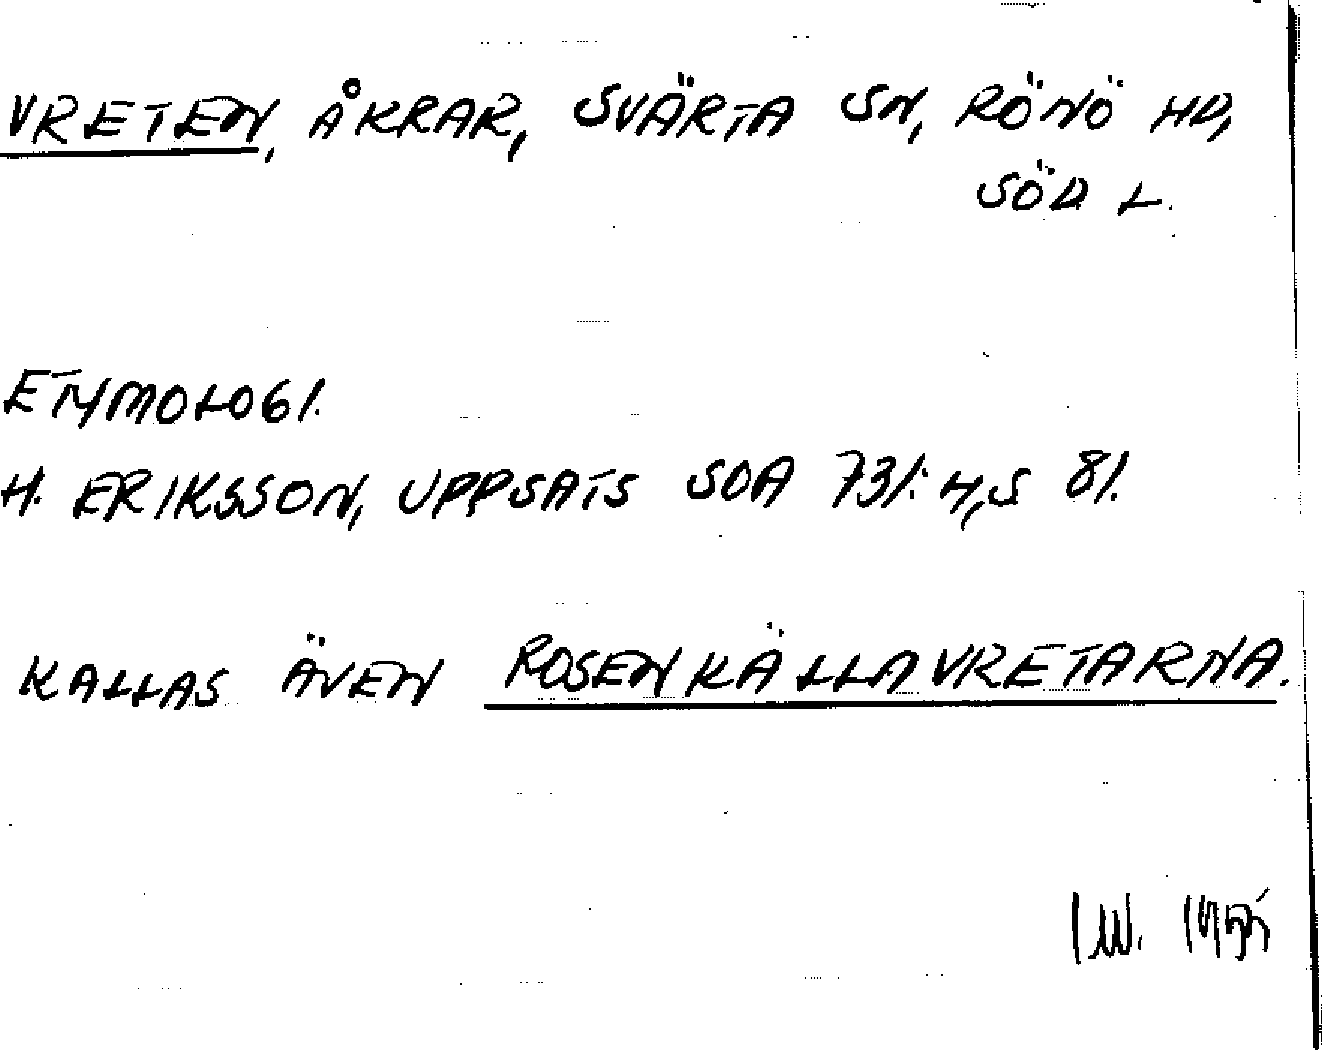 VRETEN, ÅKRAR, SVÄRTA SN, RÖNÖ HD,
SÖD L.
ETYMOLOGI.
H. ERIKSSON, UPPSATS SOA 731:4, S 81.
KALLAS ÄVEN ROSENKÄLLAVRETARNA.
IW. 1975